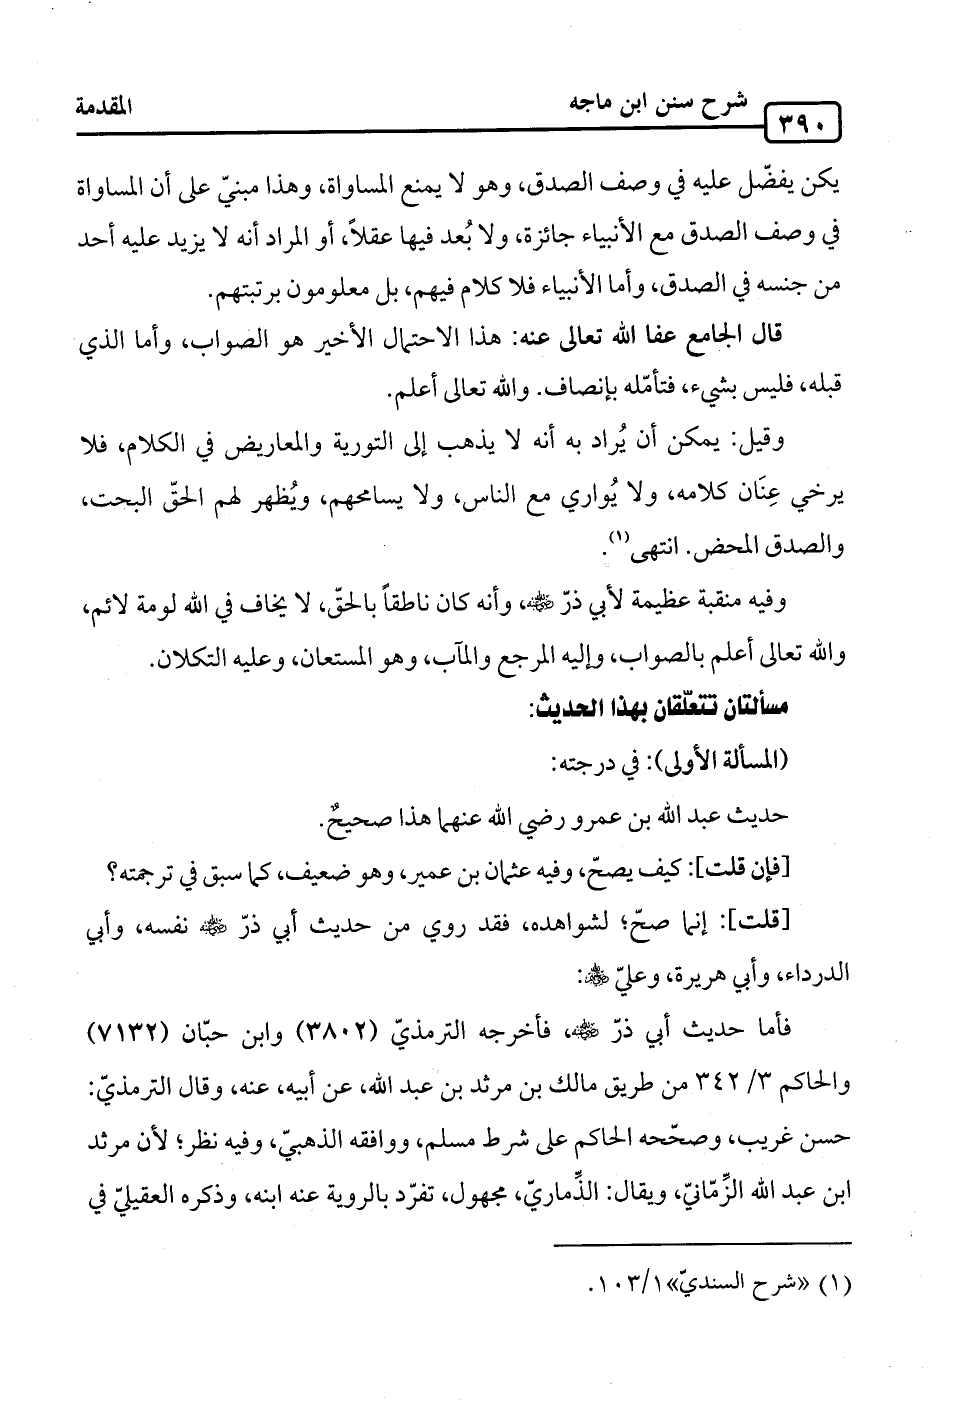 ٣٩٠ شرح سنن ابن ماجه المقدمة
يكن يفضّل عليه في وصف الصدق، وهو لا يمنع المساواة، وهذا مبنيّ على أن المساواة
في وصف الصدق مع الأنبياء جائزة، ولا بُعد فيها عقلاً، أو المراد أنه لا يزيد عليه أحد
من جنسه في الصدق، وأما الأنبياء فلا كلام فيهم، بل معلومون برتبتهم.
قال الجامع عفا الله تعالى عنه: هذا الاحتمال الأخير هو الصواب، وأما الذي
قبله، فليس بشيء، فتأمّله بإنصاف. والله تعالى أعلم.
وقيل: يمكن أن يُراد به أنه لا يذهب إلى التورية والمعاريض في الكلام، فلا
يرخي عِنَان كلامه، ولا يُواري مع الناس، ولا يسامحهم، ويُظهر لهم الحقّ البحت،
والصدق المحض. انتهى(١).
وفيه منقبة عظيمة لأبي ذرّ ﷺ، وأنه كان ناطقاً بالحقّ، لا يخاف في الله لومة لائم،
والله تعالى أعلم بالصواب، وإليه المرجع والمآب، وهو المستعان، وعليه التكلان.
مسألتان تتعلّقان بهذا الحديث:
(المسألة الأولى): في درجته:
حديث عبد الله بن عمرو رضي الله عنهما هذا صحيحٌ.
[فإن قلت]: كيف يصحّ، وفيه عثمان بن عمير، وهو ضعيف، كما سبق في ترجمته؟
[قلت]: إنما صحّ؛ لشواهده، فقد روي من حديث أبي ذرّ رضي الله عنه نفسه، وأبي
الدرداء، وأبي هريرة، وعليّ رضي الله عنهم:
فأما حديث أبي ذرّ رضي الله عنه، فأخرجه الترمذيّ (٣٨٠٢) وابن حبّان (٧١٣٢)
والحاكم ٣/ ٣٤٢ من طريق مالك بن مرثد بن عبد الله، عن أبيه، عنه، وقال الترمذيّ:
حسن غريب، وصحّحه الحاكم على شرط مسلم، ووافقه الذهبيّ، وفيه نظر؛ لأن مرثد
ابن عبد الله الزِّمّانيّ، ويقال: الذِّماريّ، مجهول، تفرّد بالروية عنه ابنه، وذكره العقيليّ في
(١) «شرح السنديّ» ١/١٠٣.